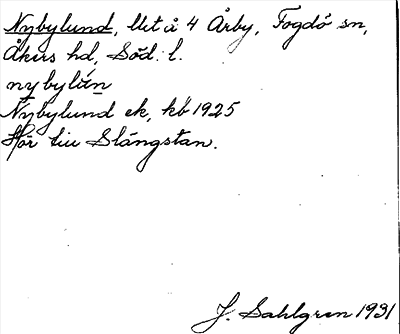 Nybylund, llet å 4 Årby, Fogdö sn,
Åkers hd, Söd. l.
nybylún
Nybylund ek, kb 1925
Hör till Slängstan.
J. Sahlgren 1931